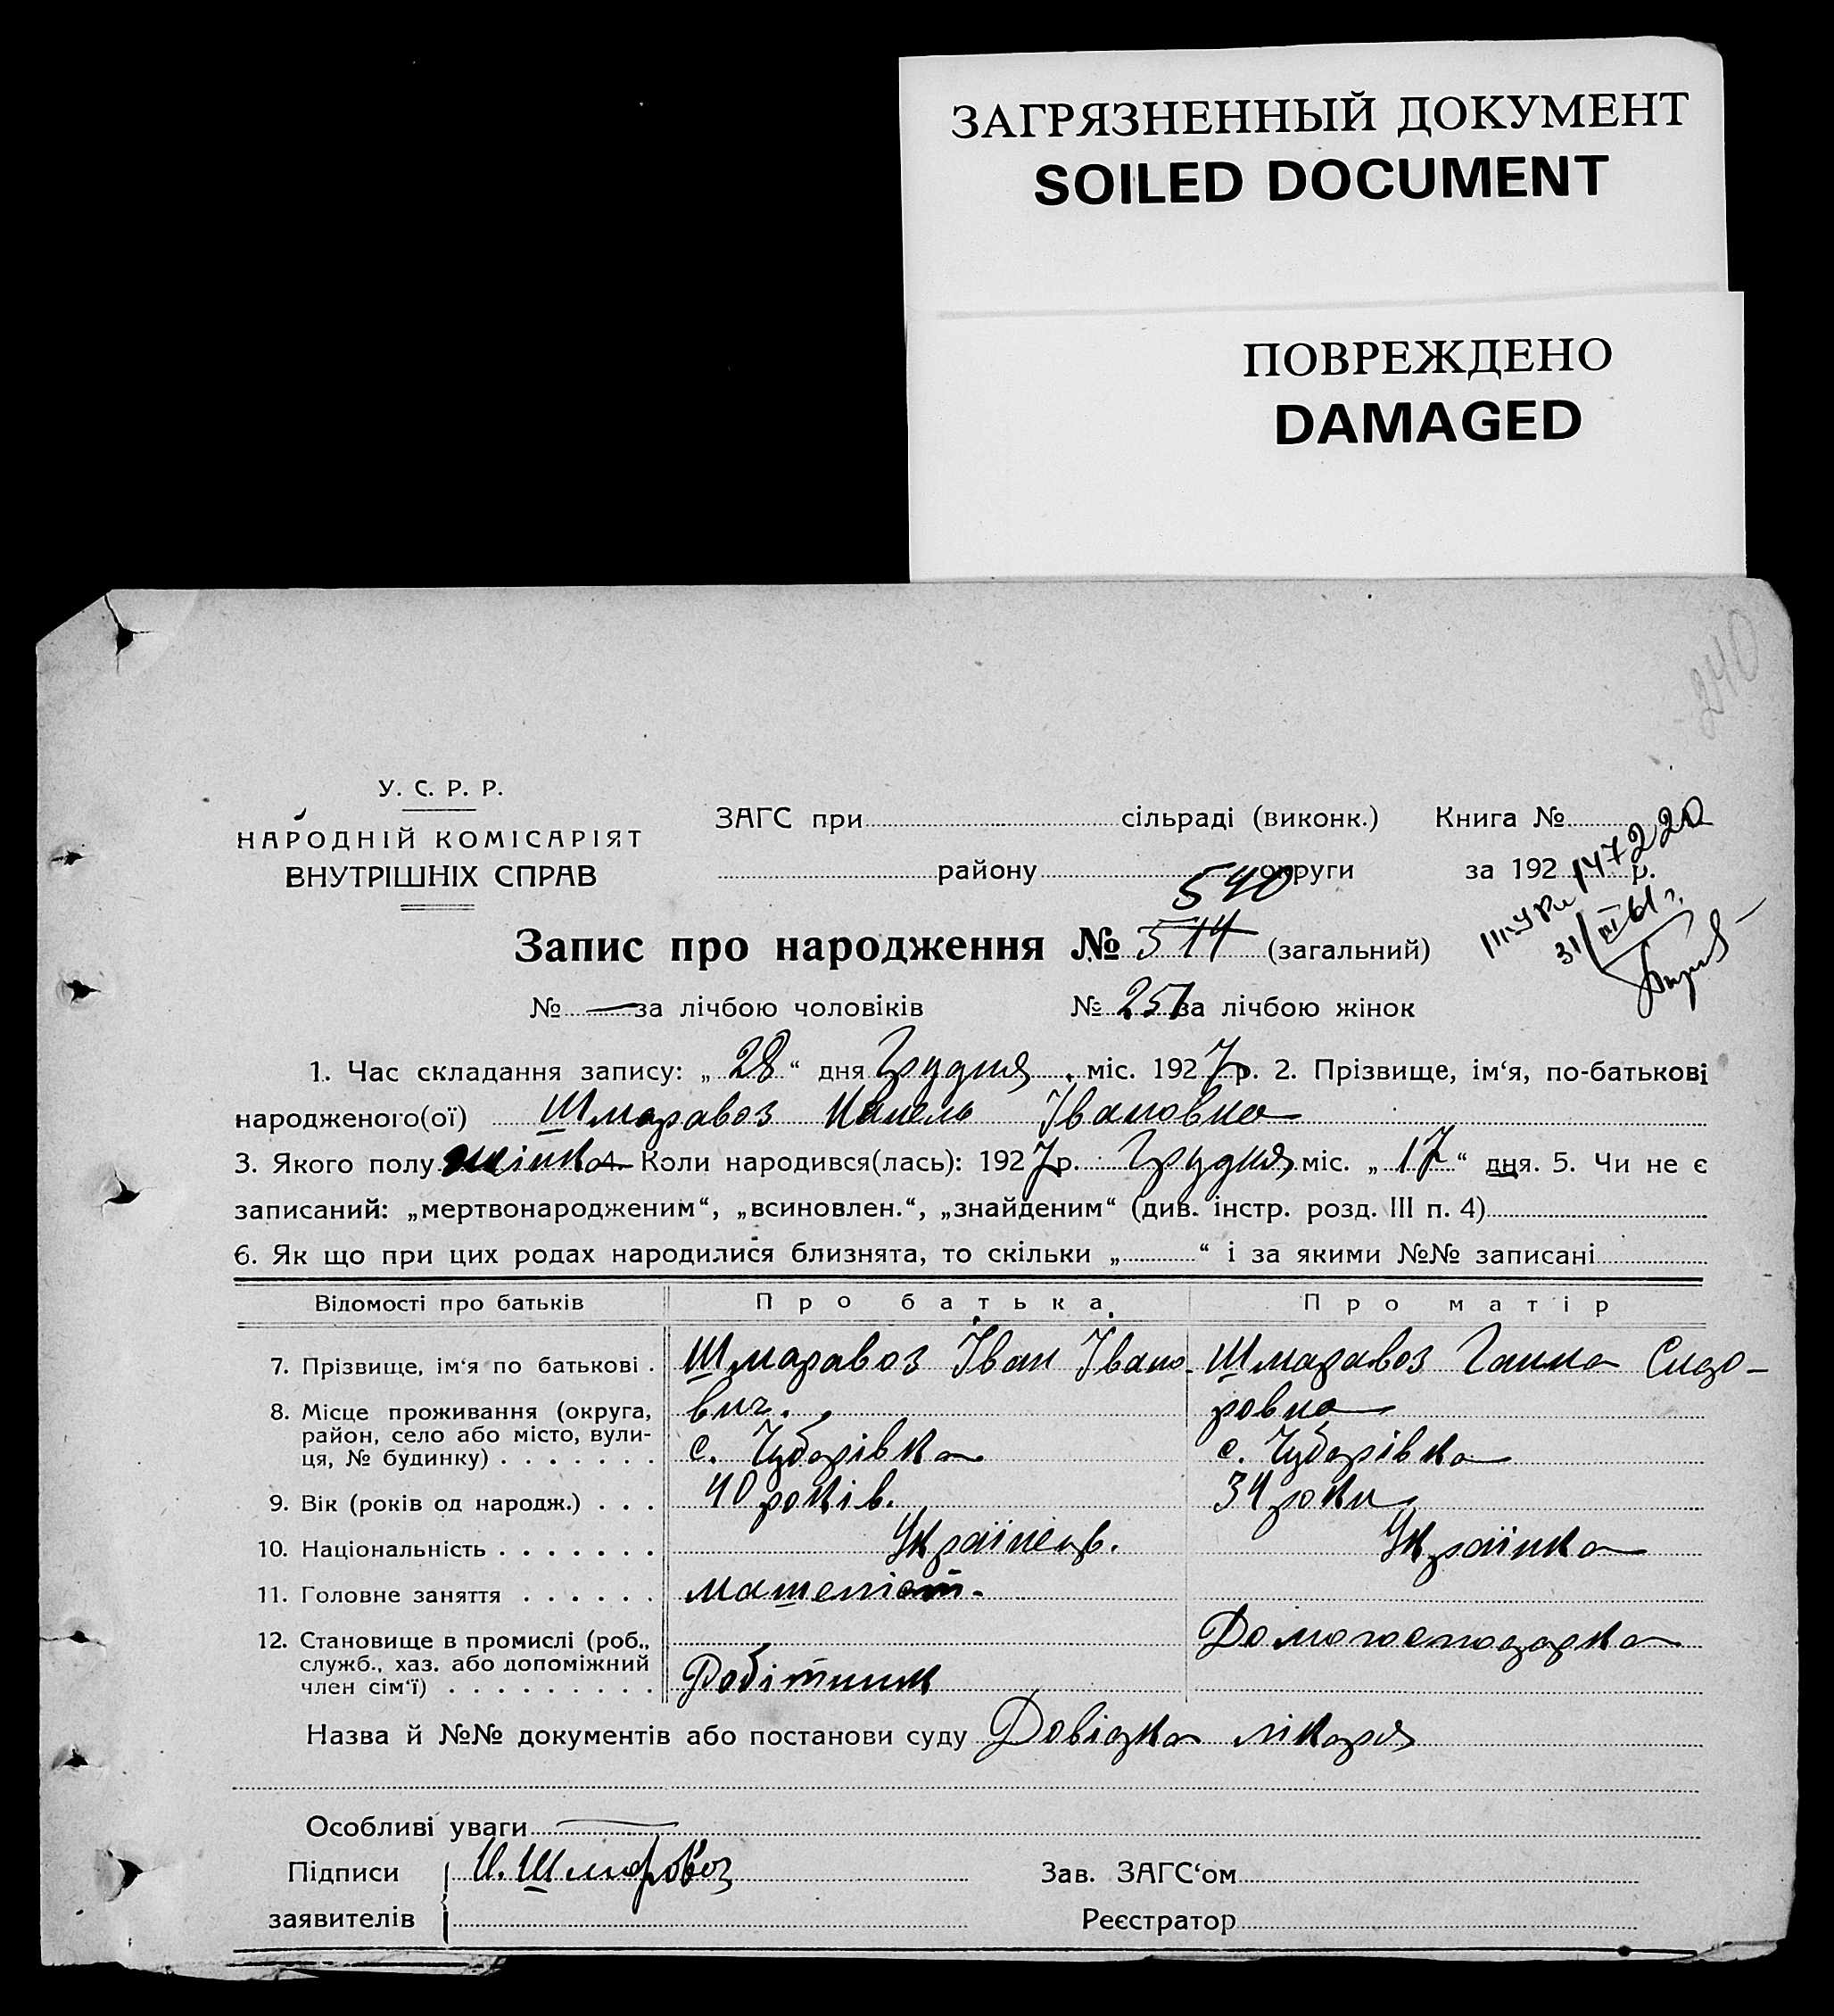 ЗАГРЯЗНЕННЫЙ ДОКУМЕНТ
SOILED DOCUMENT
ПОВРЕЖДЕНО
DAMAGED
240
У. С. Р. Р.
НАРОДНІЙ КОМІСАРІЯТ
ВНУТРІШНІХ СПРАВ
ЗАГС при сільраді (виконк.) Книга №
району округи за 192 р.
147220
31/III 61 г.
540
Запис про народження № 514 (загальний)
№ — за лічбою чоловіків № 251 за лічбою жінок
1. Час складання запису: „ 28 “ дня Грудня міс. 1927 р. 2. Прізвище, ім‘я, по-батькові
народженого(ої) Шмаравоз Івановна
3. Якого полу жінка 4. Коли народився(лась): 1927 р. Грудня міс. „ 17 “ дня. 5. Чи не є
записаний: „мертвонародженим“, „всиновлен.“, „знайденим“ (див. інстр. розд. III п. 4)
6. Як що при цих родах народилися близнята, то скільки „ “ і за якими №№ записані
Відомості про батьків Про батька Про матір
7. Прізвище, ім‘я по батькові . Шмаравоз Іван Івано- Шмаравоз Ганна Сидо-
8. Місце проживання (округа, вич. ровна
район, село або місто, вули-
ця, № будинку) . . . . . . . с. Чубарівка с. Чубарівка
9. Вік (років од народж.) . . . 40 років. 34 роки
10. Національність . . . . . . . Українець. Українка
11. Головне заняття . . . . . . машеніст.
12. Становище в промислі (роб., Домогосподарка
служб., хаз. або допоміжний
член сім‘ї) . . . . . . . . . Робітник
Назва й №№ документів або постанови суду Довідка лікаря
Особливі уваги —
Підписи И. Шмаровоз Зав. ЗАГС‘ом
заявителів Реєстратор